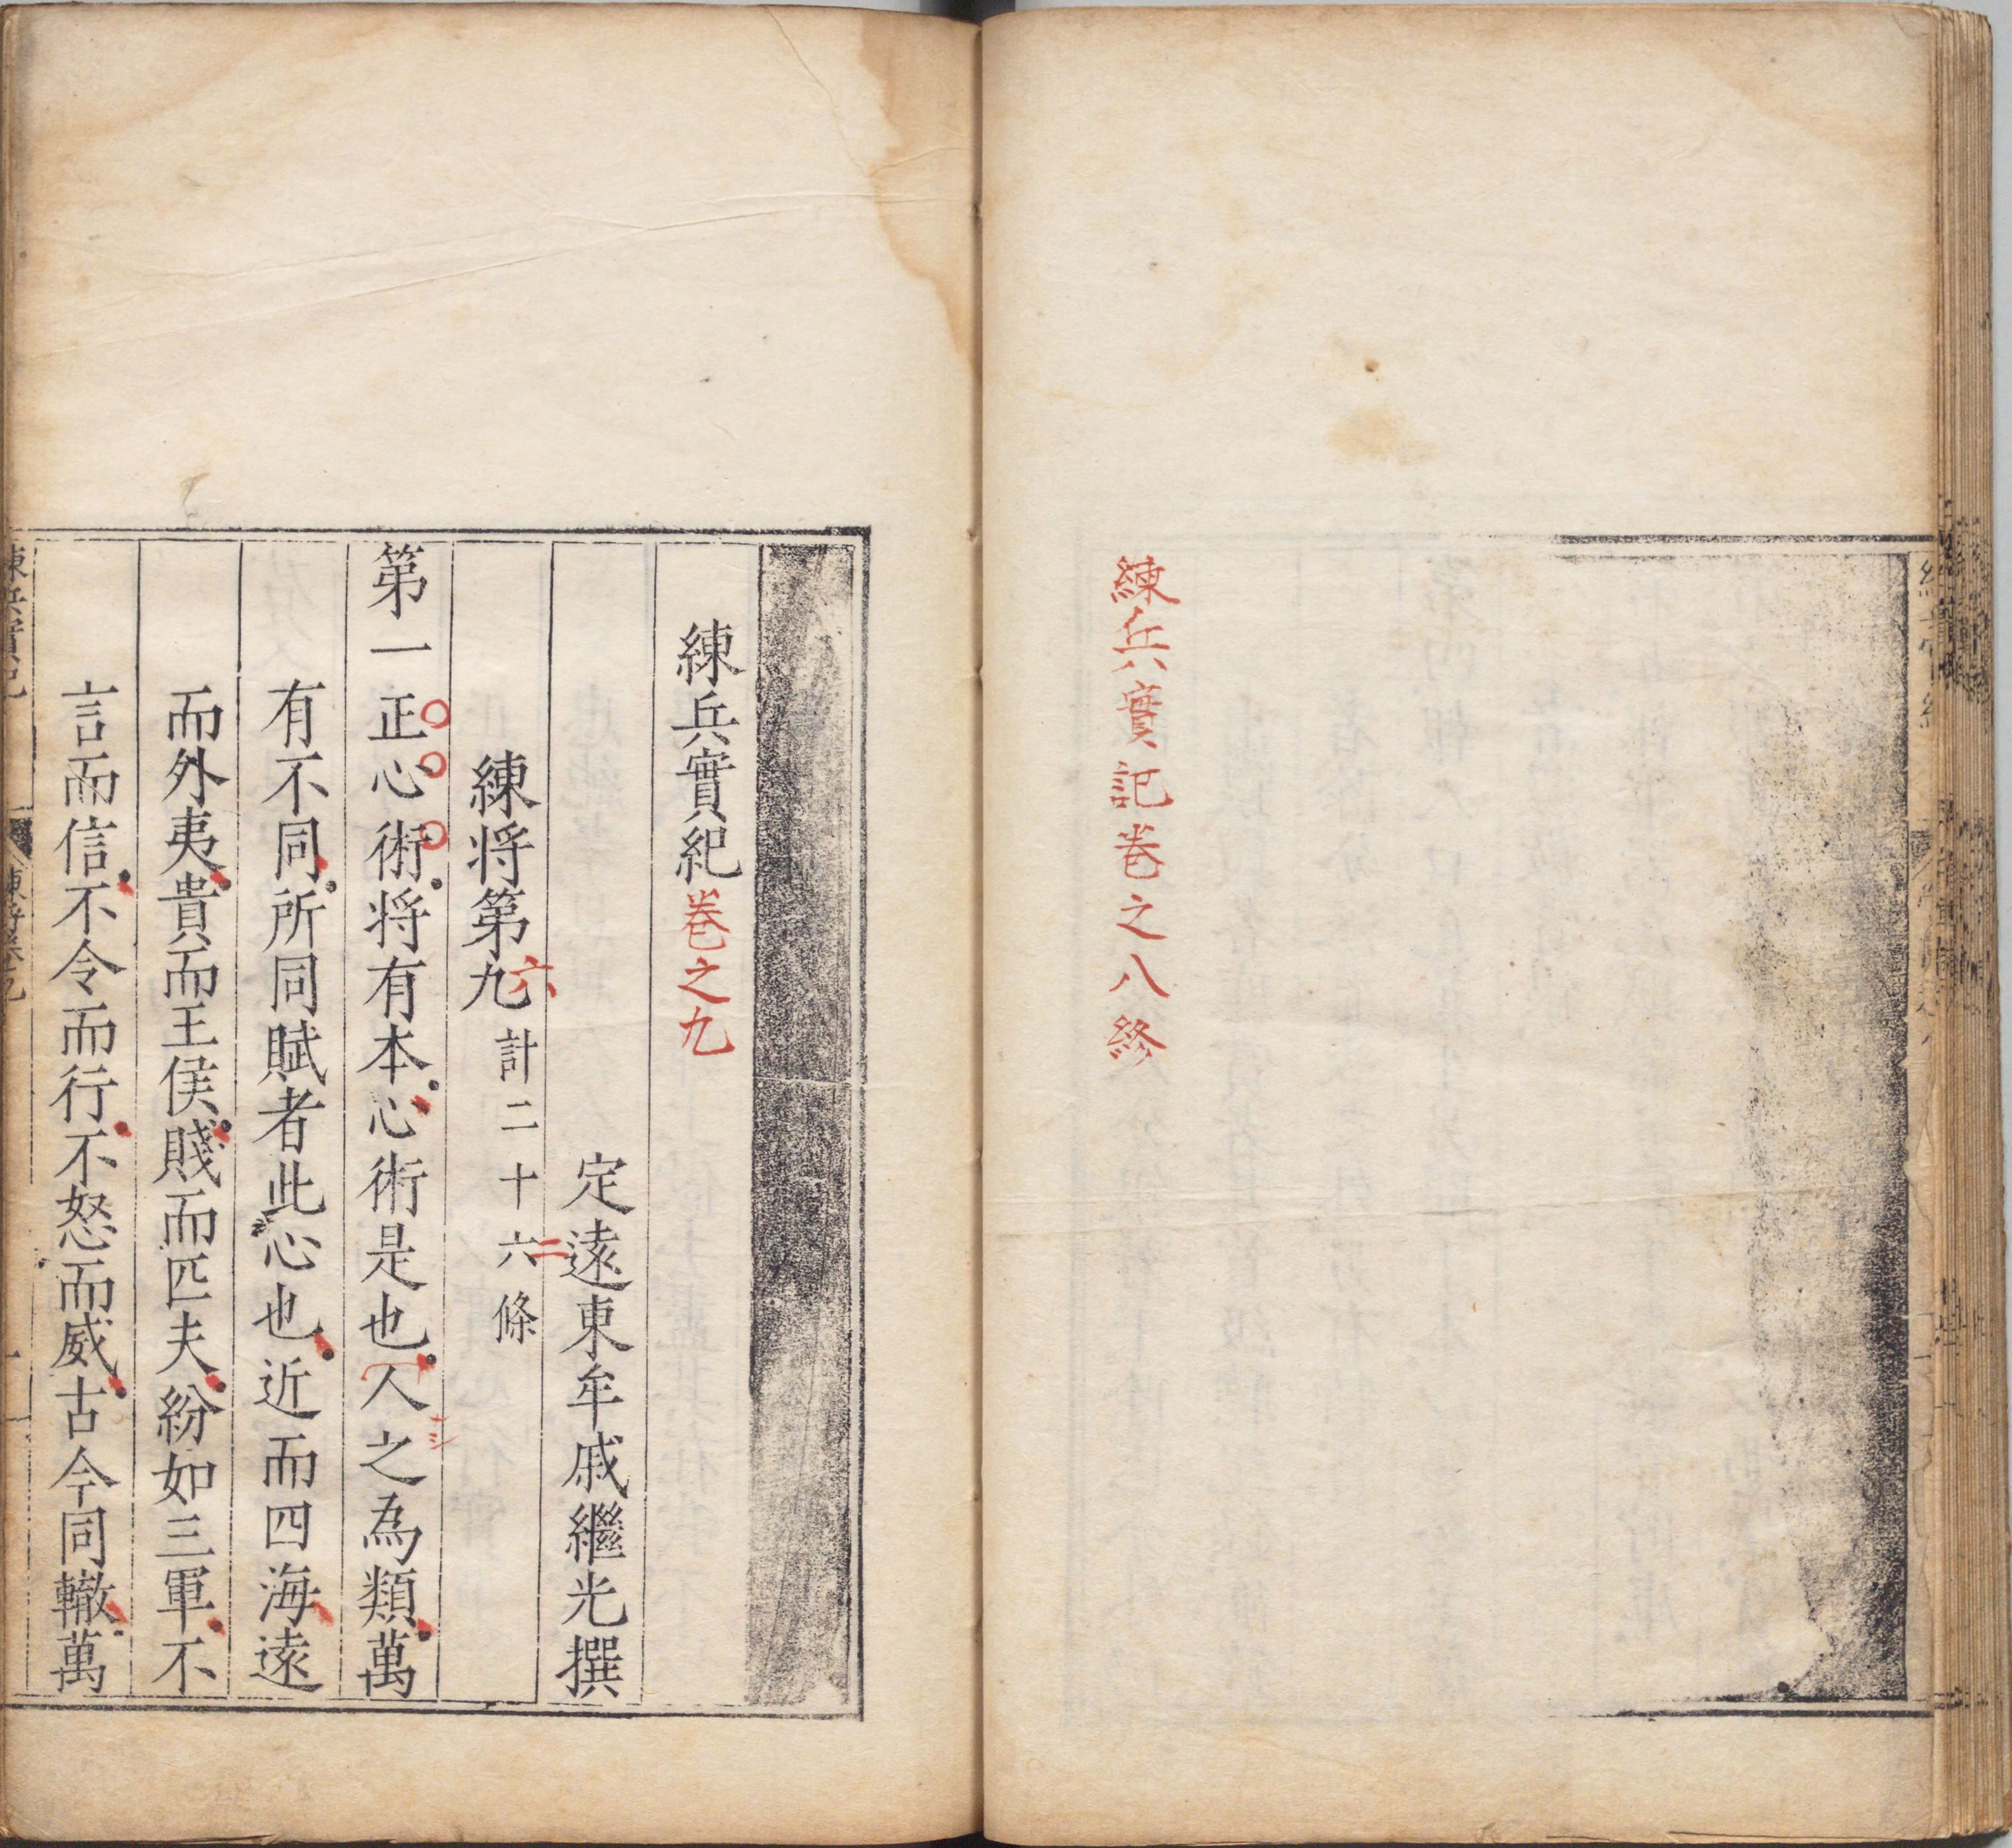 練兵實記卷之八終
練兵實紀卷之九
定遠東牟戚繼光撰
練将第九六計二十六二條
第一正心術将有本心術是也人之為類萬
有不同所同賦者此心也近而四海遠
而外夷貴而王侯賤而匹夫紛如三軍不
言而信不令而行不怒而威古今同轍萬
練兵實紀
練將卷九
一